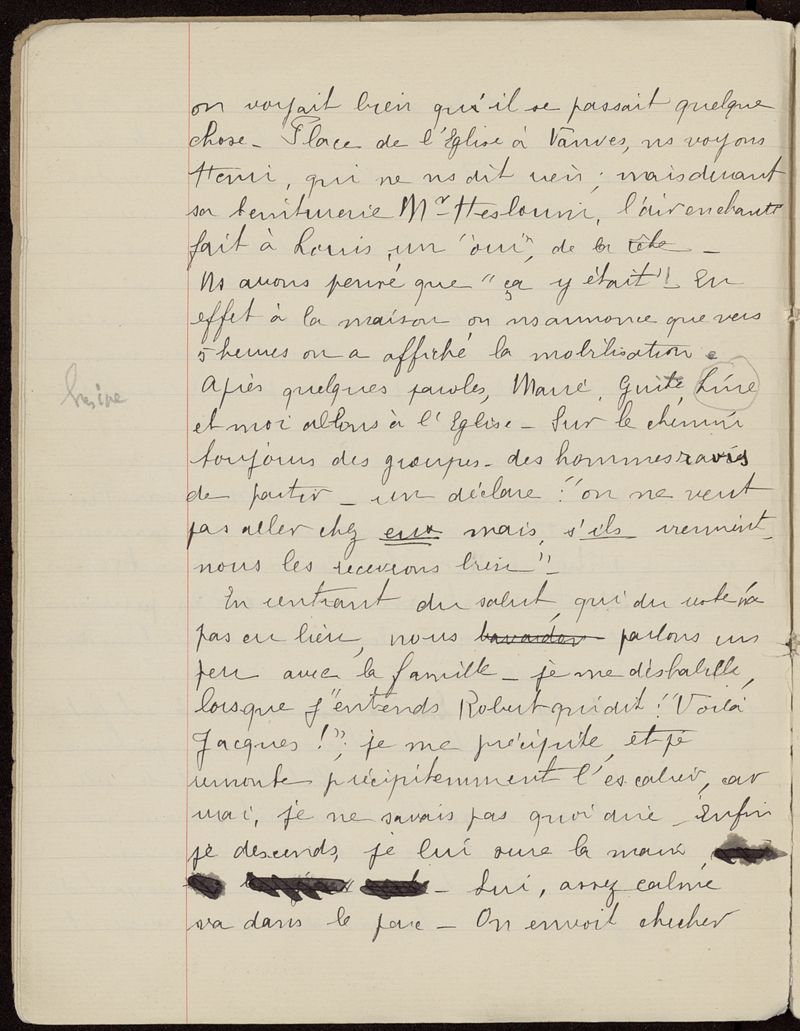 on voyait bien qu'il se passait quelque
chose - Place de l'Eglise à Vanves, ns voyons
Henri, qui ne ns dit rien ; mais devant
sa teinturerie Mr Heslouin, l'air enchanté
fait à Louis un "oui", de la tête -
Ns avons pensé que "ça y était"! En
effet à la maison on ns annonce que vers
5 heures on a affiché la mobilisation.
Après quelques paroles, Marie, Guite, Line
et moi allons à l'Eglise - Sur le chemin
toujours des groupes - des hommes ravis
de partir - un déclare : "on ne veut
pas aller chez eux mais, s'ils viennent,
nous les recevrons bien" -
En rentrant du salut, qui du reste n'a
pas eu lieu, nous bavardons parlons un
peu avec la famille - je me déshabille,
lorsque j'entends Robert qui dit : "Voilà
Jacques !"; je me précipite, et je
remonte précipitemment l'escalier, car
moi, je ne savais pas quoi dire - Enfin
je descends, je lui serre la main,
- Lui, assez calme
va dans le parc - On envoit chercher